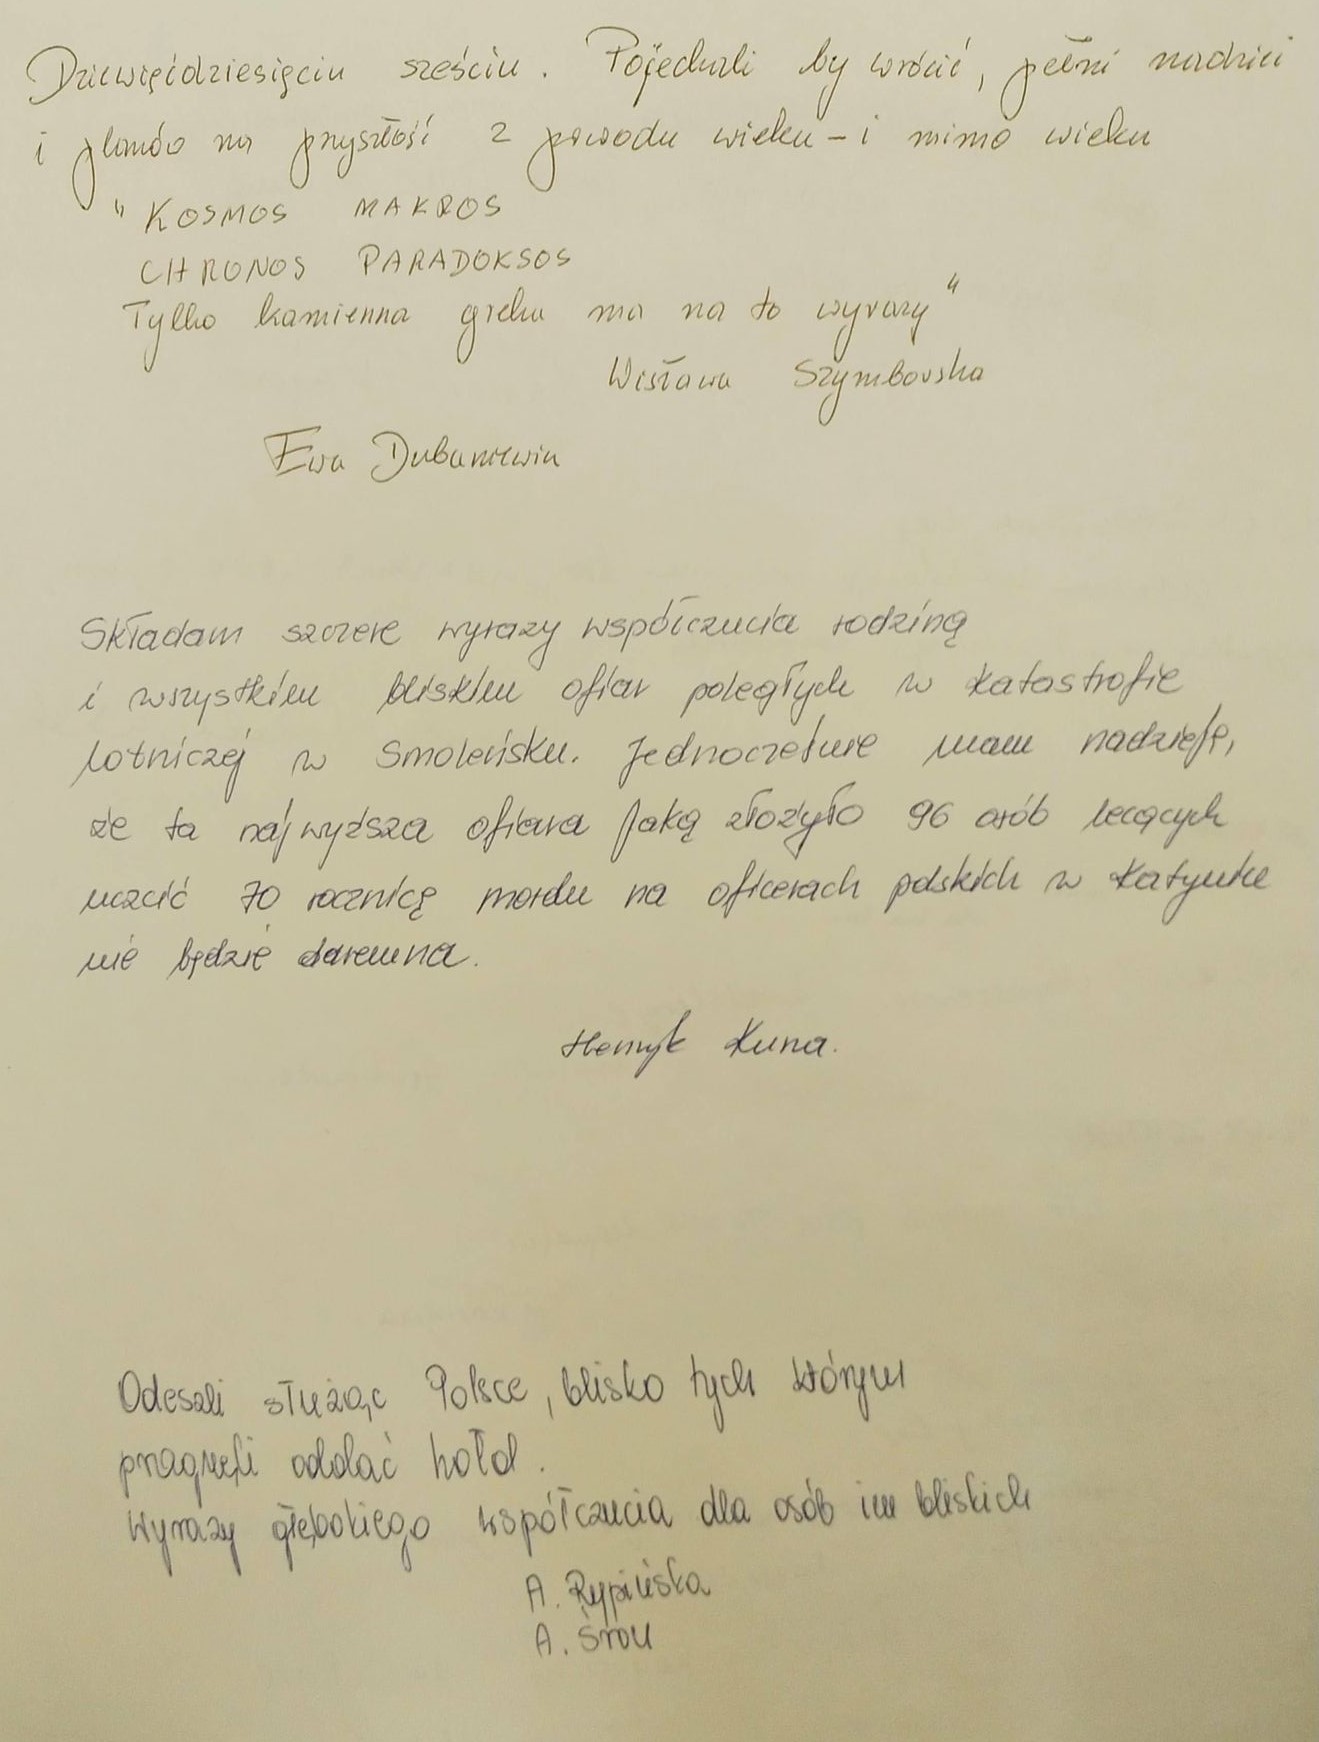 Dziewięćdziesięciu sześciu. Pojechali by wrócić, pełni nadziei
i planów na przyszłość z powodu wieku – i mimo wieku
"KOSMOS MAKROS
CHRONOS PARADOKSOS
Tylko kamienna greka ma na to wyrazy"
Wisława Szymborska
Ewa Dubaniewicz
Składam szczere wyrazy współczucia rodziną
i wszystkim bliskim ofiar poległych w katastrofie
lotniczej w Smoleńsku. Jednocześnie mam nadzieję,
że ta najwyższa ofiara jaką złożyło 96 osób lecących
uczcić 70 rocznicę mordu na oficerach polskich w Katyniu
nie będzie daremna.
Henryk Kuna.
Odeszli służąc Polsce, blisko tych którym
pragnęli oddać hołd.
Wyrazy głębokiego współczucia dla osób im bliskich
A. Rypińska
A. Sroń